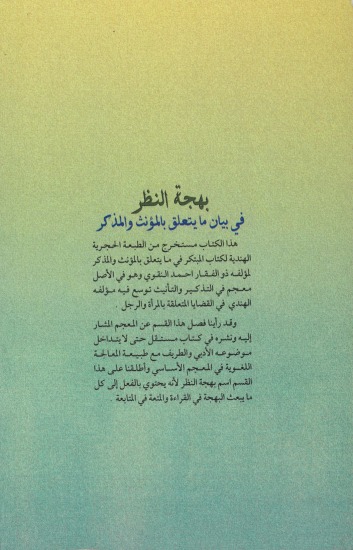 بهجة النظر
في بيان ما يتعلق بالمؤنث والمذكر
هذا الكتاب مستخرج من الطبعة الحجرية
الهندية لكتاب المبتكر في ما يتعلق بالمؤنث والمذكر
لمؤلفه ذو الفقار احمد النقوي وهو في الأصل
معجم في التذكير والتأنيث توسع فيه مؤلفه
الهندي في القضايا المتعلقة بالمرأة والرجل .
وقد رأينا فصل هذا القسم عن المعجم المشار
إليه ونشره في كتاب مستقل حتى لا يتداخل
موضوعه الأدبي والطريف مع طبيعة المعالجة
اللغوية في المعجم الأساسي وأطلقنا على هذا
القسم اسم بهجة النظر لأنه يحتوي بالفعل إلى كل
ما يبعث البهجة في القراءة والمتعة في المتابعة .